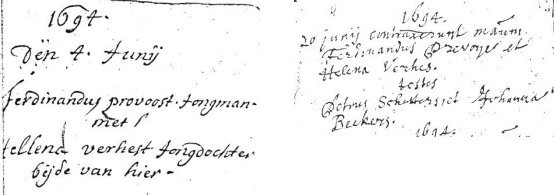 1694.
Dën 4. Junij
ferdinandus provoost Jongman
met
Hellena verhest Jongdochter
beijde van hier
1694.
20 junij contraxerunt matim
Ferdinandus Prevoost et
Helena Verhes.
testes
Petrus et Johanna
Beckers.
1694.